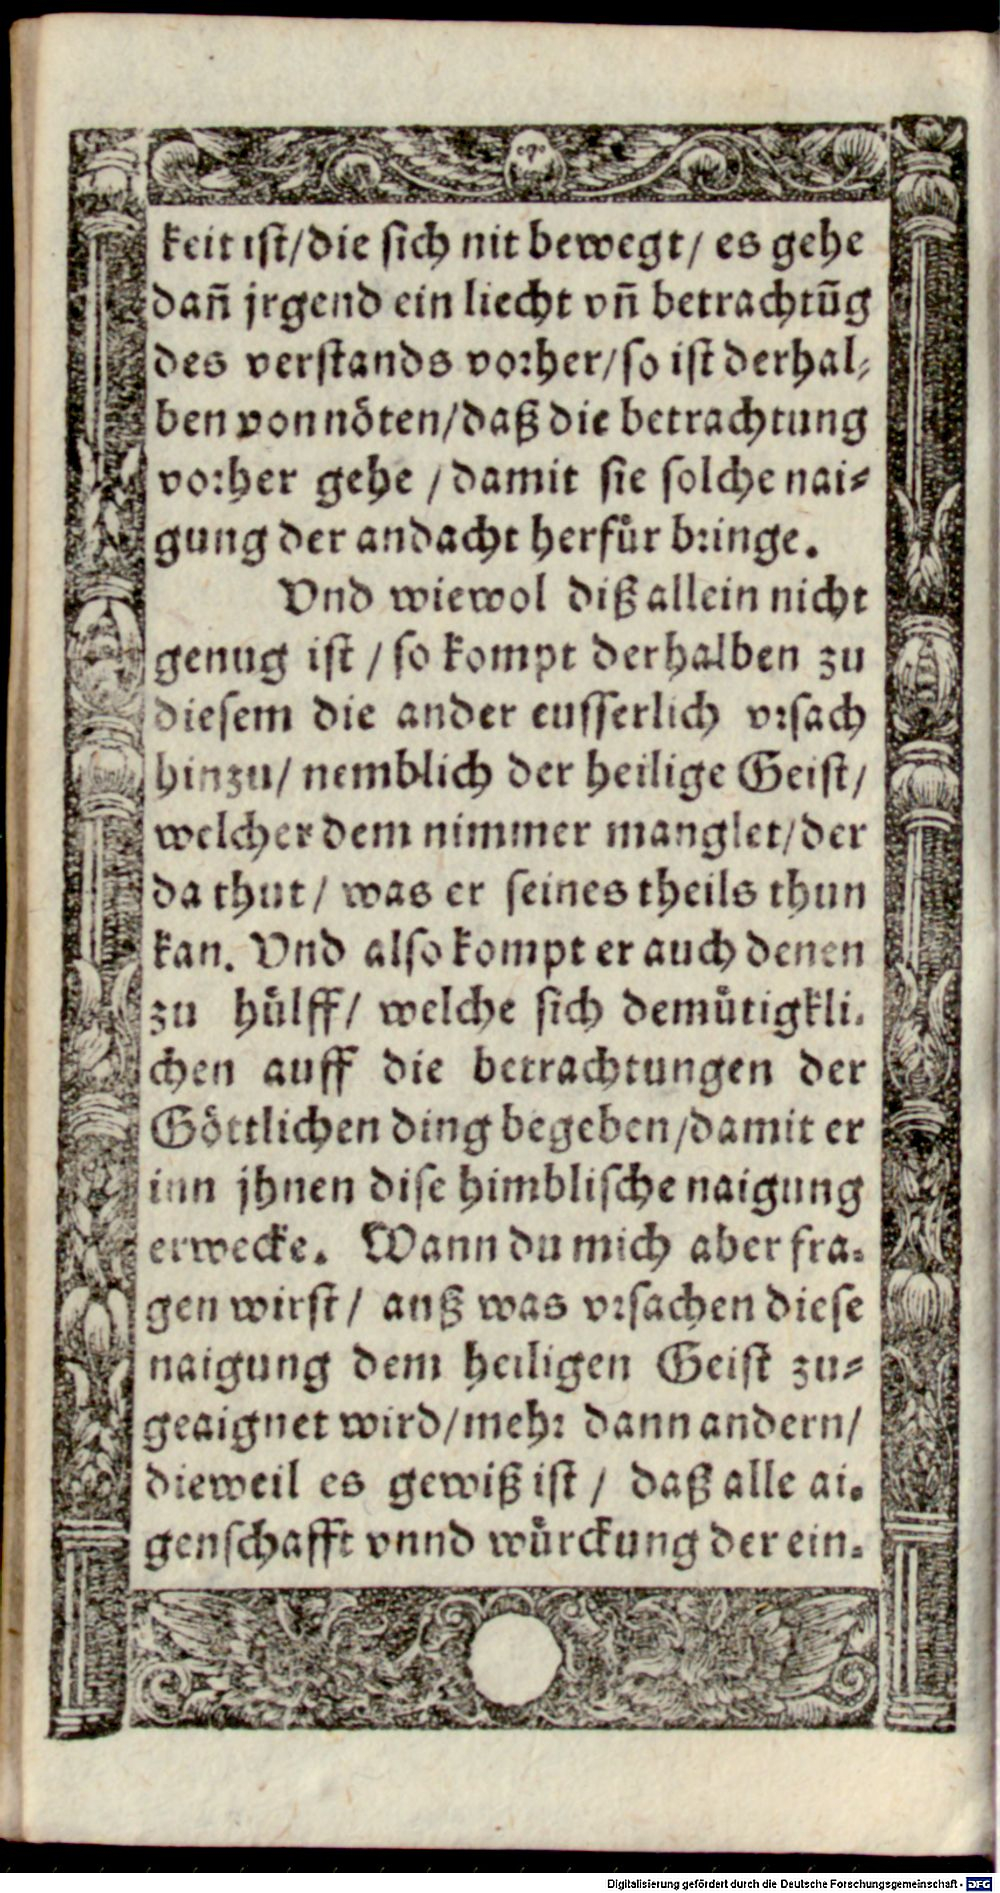 keit ist/die sich nit bewegt/ es gehe
dañ jrgend ein liecht vñ betrachtũg
des verstands vorher/so ist derhal-
ben von nöten/daß die betrachtung
vorher gehe /damit sie solche nai-
gung der andacht herfuͤr bringe.
Vnd wiewol diß allein nicht
genug ist /so kompt derhalben zu
diesem die ander eusserlich vrsach
hinzu/ nemblich der heilige Geist/
welcher dem nimmer manglet/der
da thut/ was er seines theils thun
kan. Vnd also kompt er auch denen
zu huͤlff/ welche sich demuͤtigkli-
chen auff die betrachtungen der
Goͤttlichen ding begeben/damit er
inn jhnen dise himblische naigung
erwecke. Wann du mich aber fra-
gen wirst/ auß was vrsachen diese
naigung dem heiligen Geist zu-
geaignet wird/mehr dann andern/
dieweil es gewiß ist / daß alle ai-
genschafft vnnd wuͤrckung der ein-
Digitalisierung gefördert durch die Deutsche Forschungsgemeinschaft - DFG